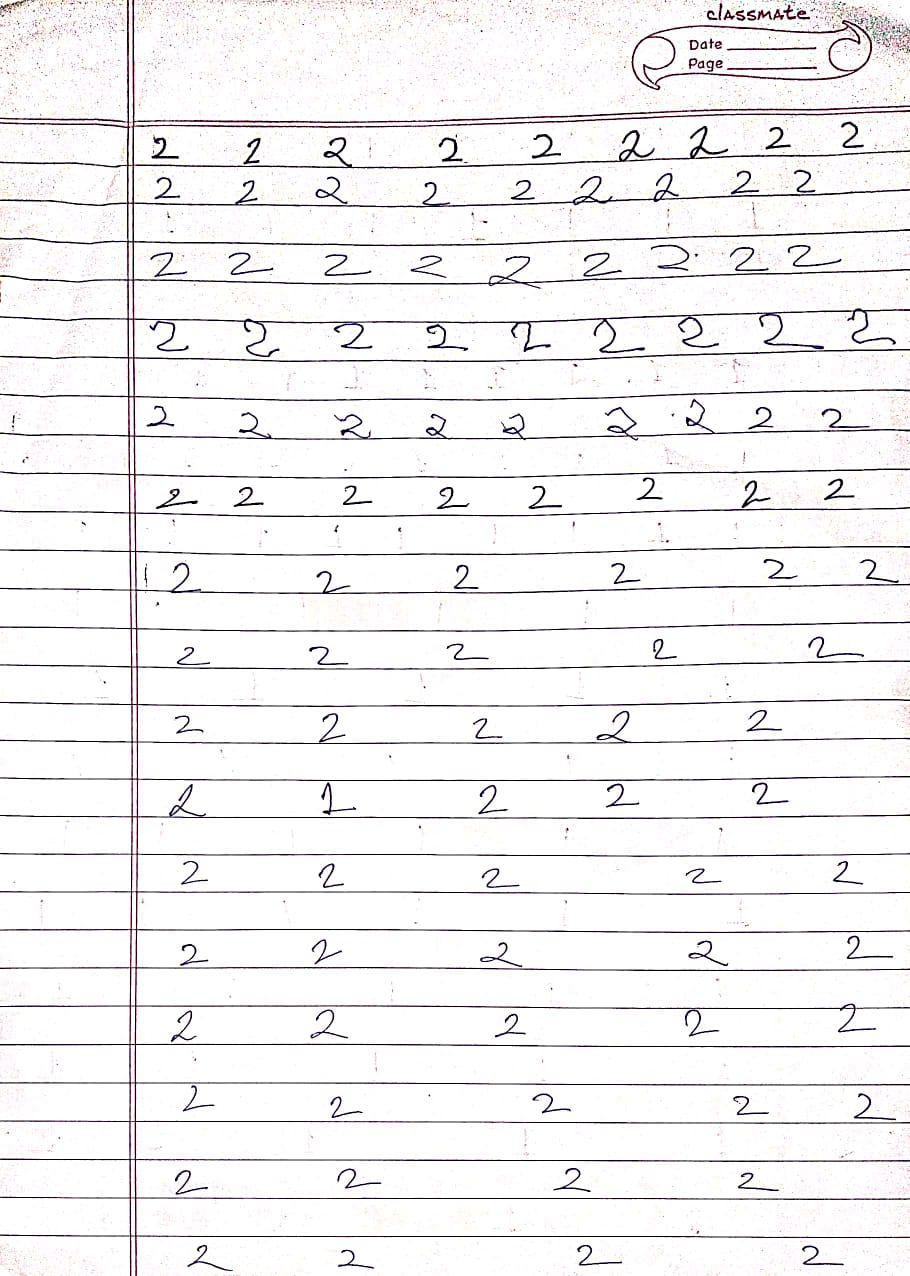 classmate
Date
Page
2 2 2 2 2 2 2 2 2
2 2 2 2 2 2 2 2 2
2 2 2 2 2 2 2 2 2
2 2 2 2 2 2 2 2 2
2 2 2 2 2 2 2 2 2
2 2 2 2 2 2 2 2
2 2 2 2 2 2
2 2 2 2 2
2 2 2 2 2
2 1 2 2 2
2 2 2 2 2
2 2 2 2 2
2 2 2 2 2
2 2 2 2 2
2 2 2 2
2 2 2 2